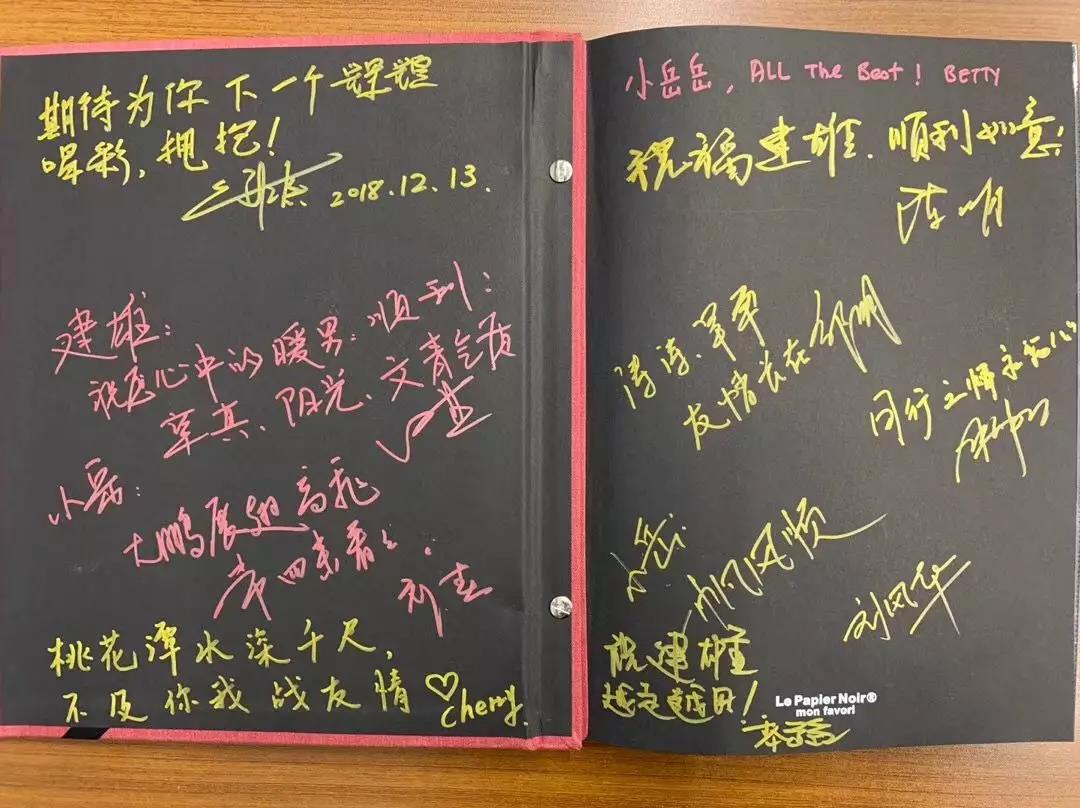 期待为你下一个辉煌
喝彩，拥抱！
2018.12.13.
建雄：
祝愿心中的暖男：顺利：
率真、阳光、文青气质
小岳：
大鹏展翅高飞
常回来看看。
桃花潭水深千尺，
不及你我战友情
♡Cherry.
小岳岳，ALL The Best！ BETTY
祝福建雄、顺利如意！
友情长在
同行
小岳：
帆风顺
刘风华
祝建雄
越走越旺！
Le Papier Noir®
mon favori